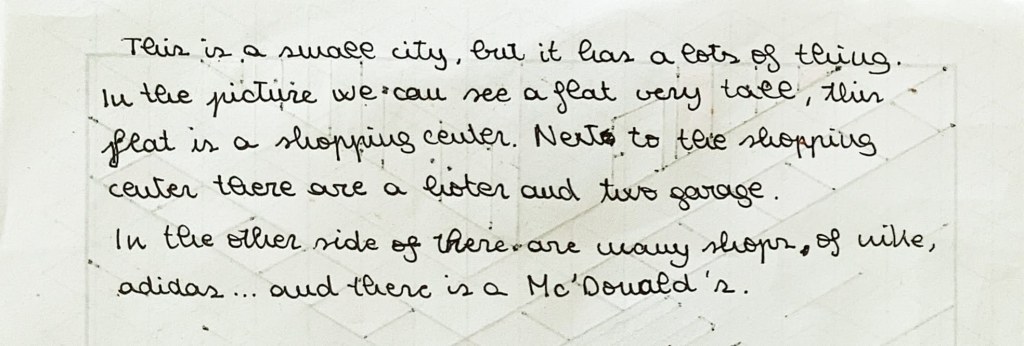 This is a small city, but it has a lots of thing.
In the picture we can see a flat very tall, this
flat is a shopping center. Next to the shopping
center there are a hoter and two garage.
In the other side of there are many shops, of nike,
adidas... and there is a Mc'Donald's.